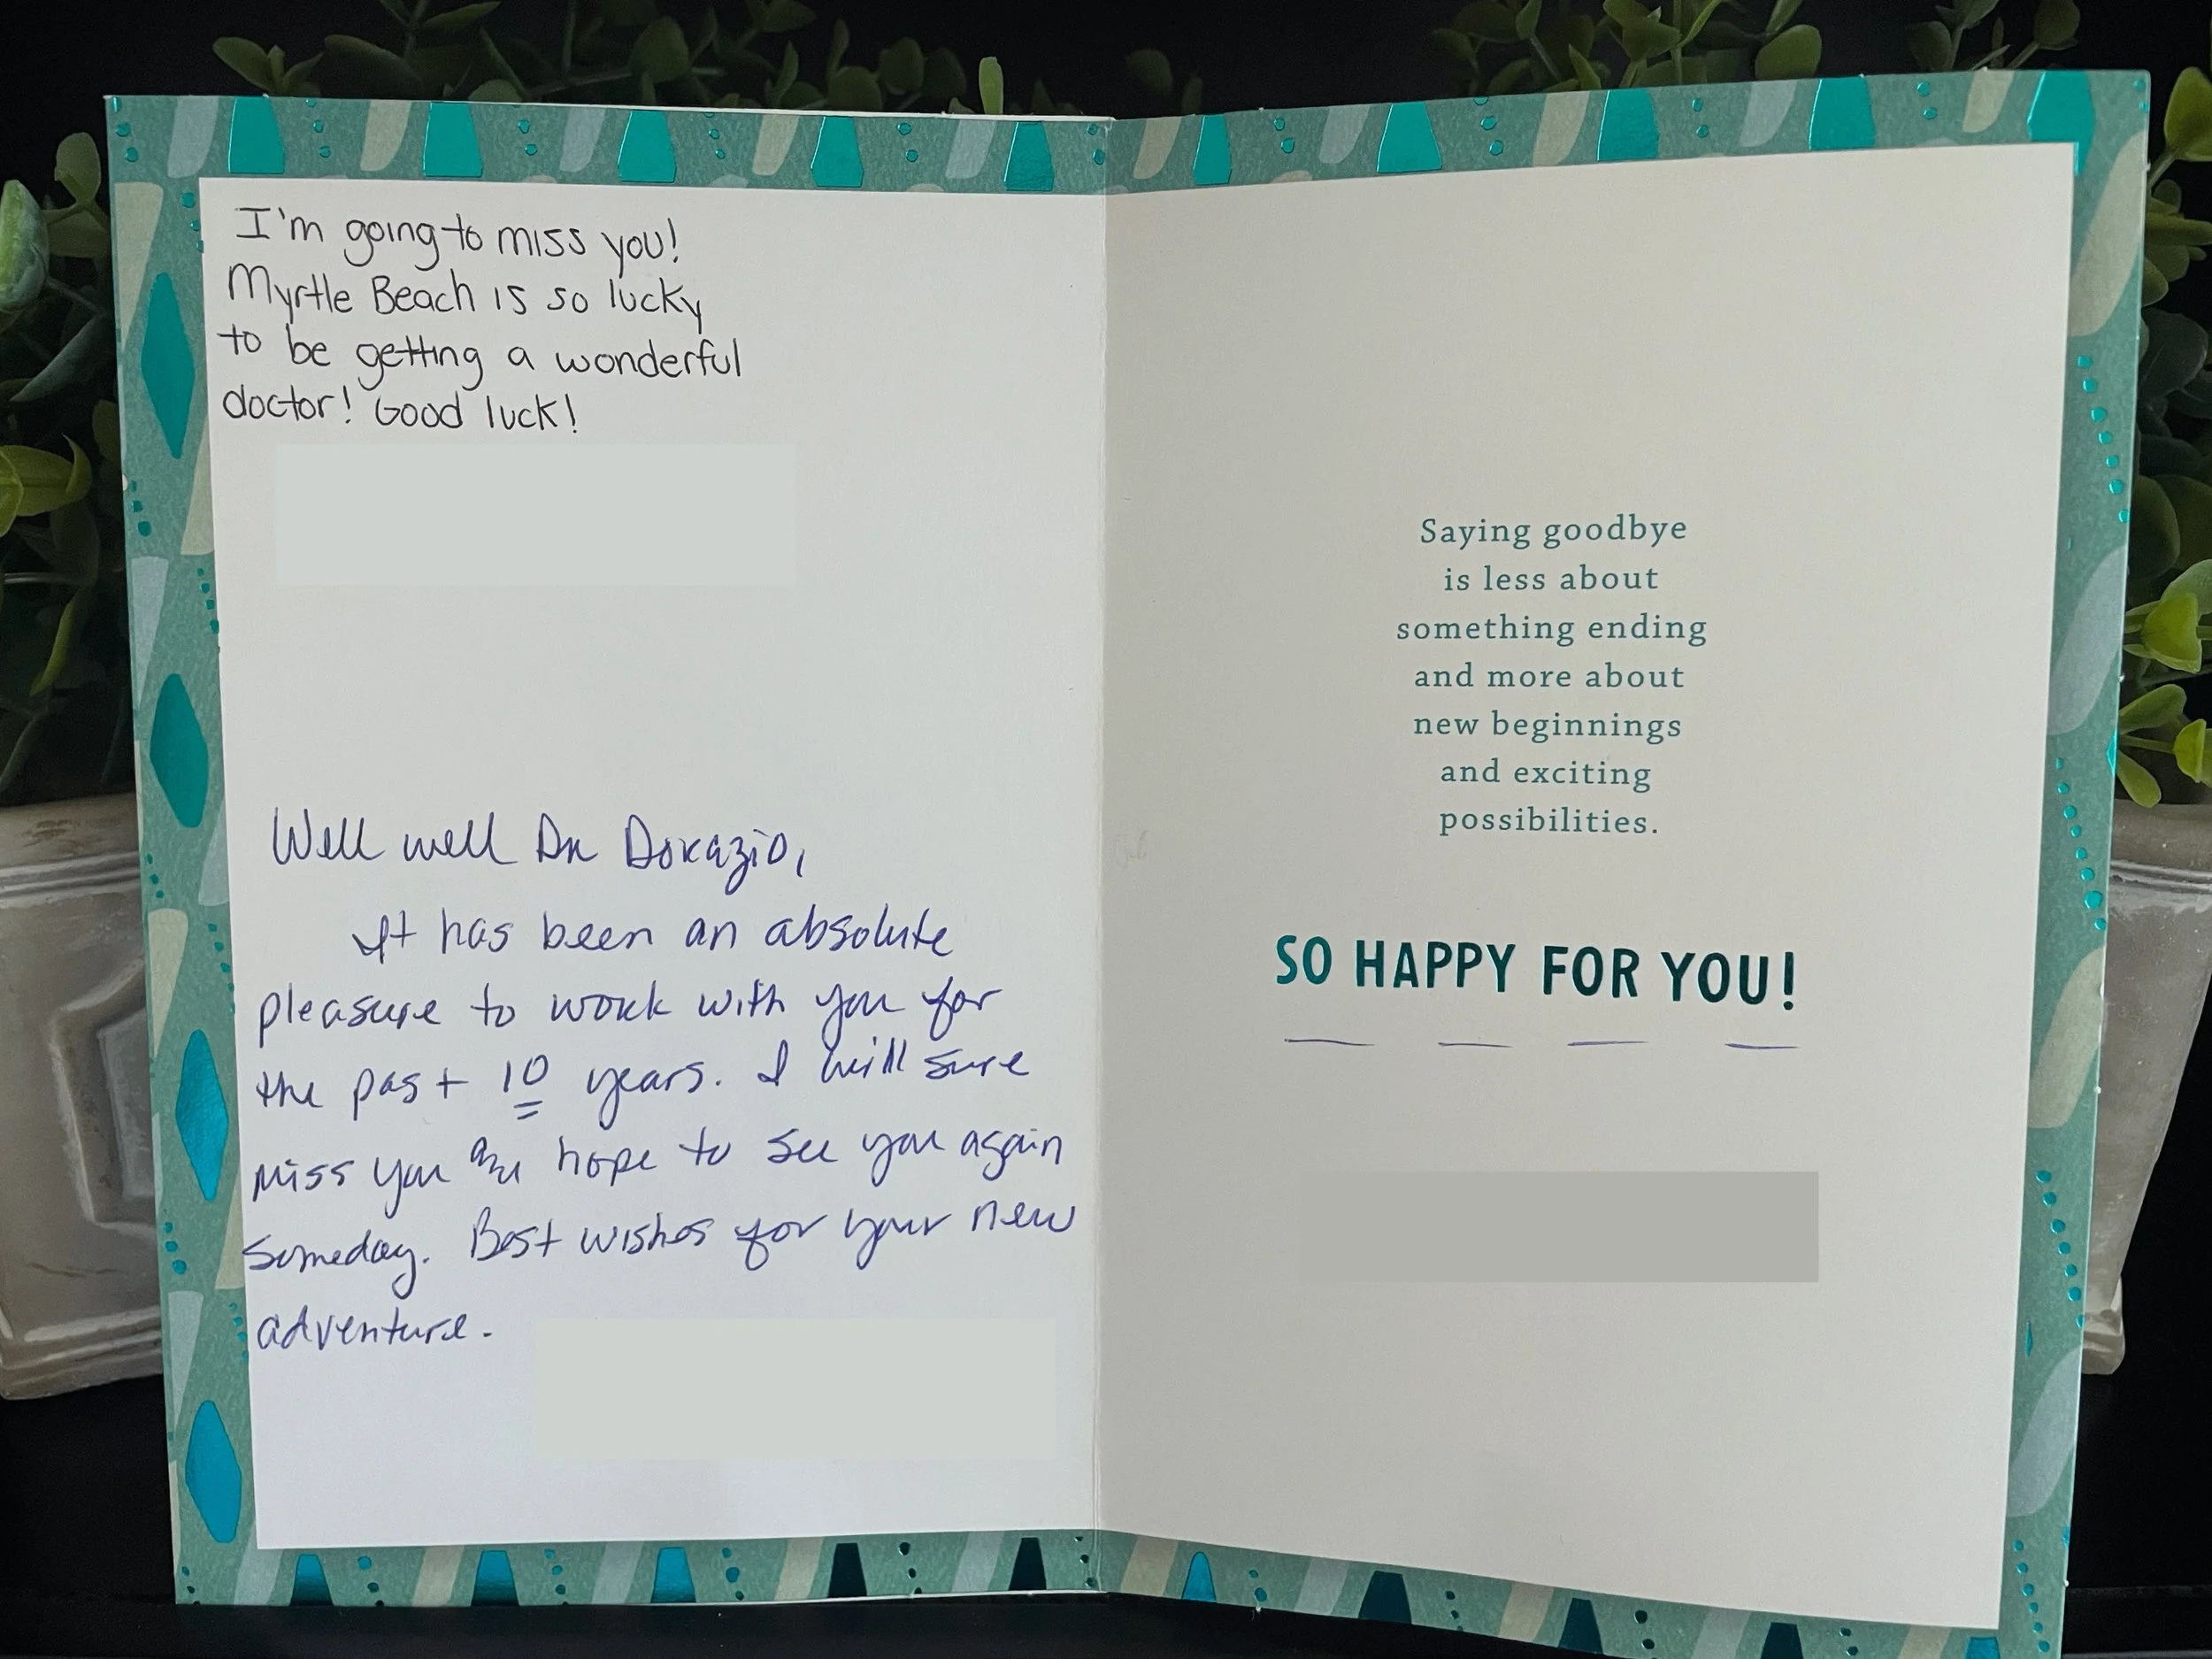 I'm going to miss you!
Myrtle Beach is so lucky
to be getting a wonderful
doctor! Good luck!
Well well Dr Dorazio,
It has been an absolute
pleasure to work with you for
the past 10 years. I will sure
miss you and hope to see you again
someday. Best wishes for your new
adventure.
Saying goodbye
is less about
something ending
and more about
new beginnings
and exciting
possibilities.
SO HAPPY FOR YOU!